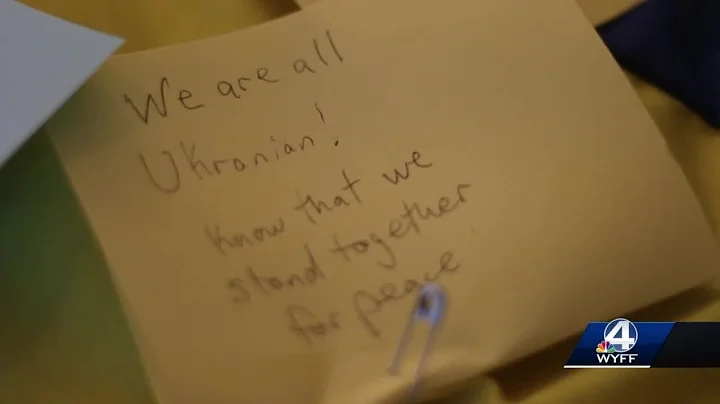 We are all
Ukronian!
know that we
stand together
for peace
4
WYFF